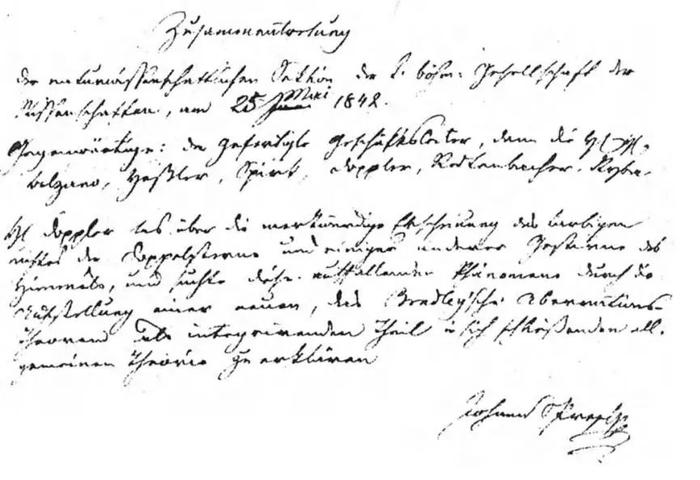 Zusammentretung
der naturwissenschaftlichen Sektion der k. böhm. Gesellschaft der
Wissenschaften, am 25 Juni Mai 1842.
Gegenwärtige: der gefertigte Geschäftsleiter, dann die HH.
Bolzano, Heßler, Spirk, Doppler, Redtenbacher, Ryba.
H Doppler las über die merkwürdige Erscheinung des farbigen
Lichtes der Doppelsterne und einiger anderer Gestirne des
Himmels, und suchte diese auffallenden Phänomene durch die
Aufstellung einer neuen, das Bradley'sche Aberrations-
Theorem als integrirenden Theil in sich schließenden all-
gemeinen Theorie zu erklären
Johann